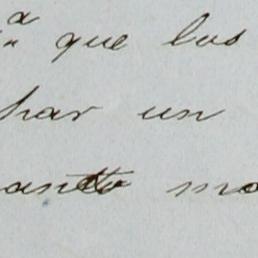 que los
har un
anto mo